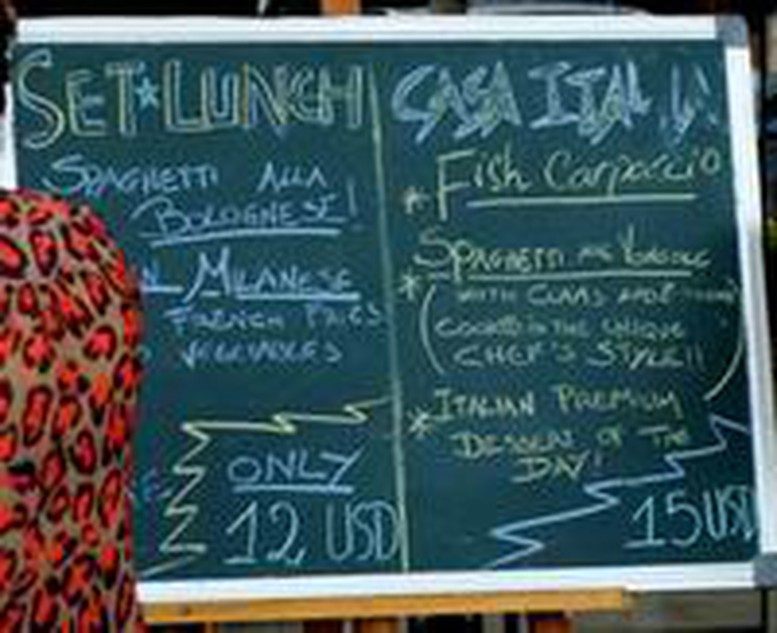 SET★LUNCH
SPAGHETTI ALLA
BOLOGNESE!
MILANESE
FRENCH FRIES
VEGETABLES
ONLY
12 USD
CASA
* Fish Carpaccio
* SPAGHETTI
(WITH CLAMS
COOKED IN THE UNIQUE
CHEF'S STYLE!!)
* ITALIAN PREMIUM
DESSERT OF THE
DAY!
15 USD